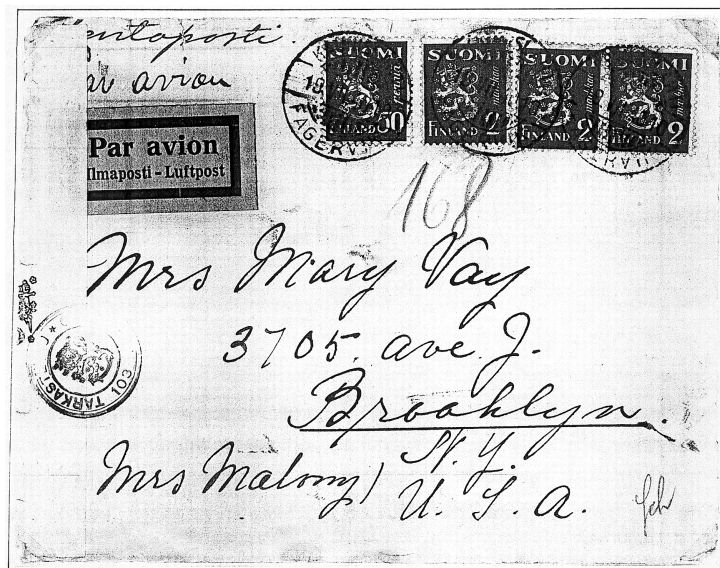 ar avion
Par avion
Ilmaposti - Luftpost
SUOMI
FINLAND 50
SUOMI
FINLAND 2
SUOMI
FINLAND 2
SUOMI
FINLAND 2
FAGERV
168
Mrs Mary Vay
3705. Ave. J.
Brooklyn.
N. Y.
Mrs Malony/ U. S. A.
TARKAST
103